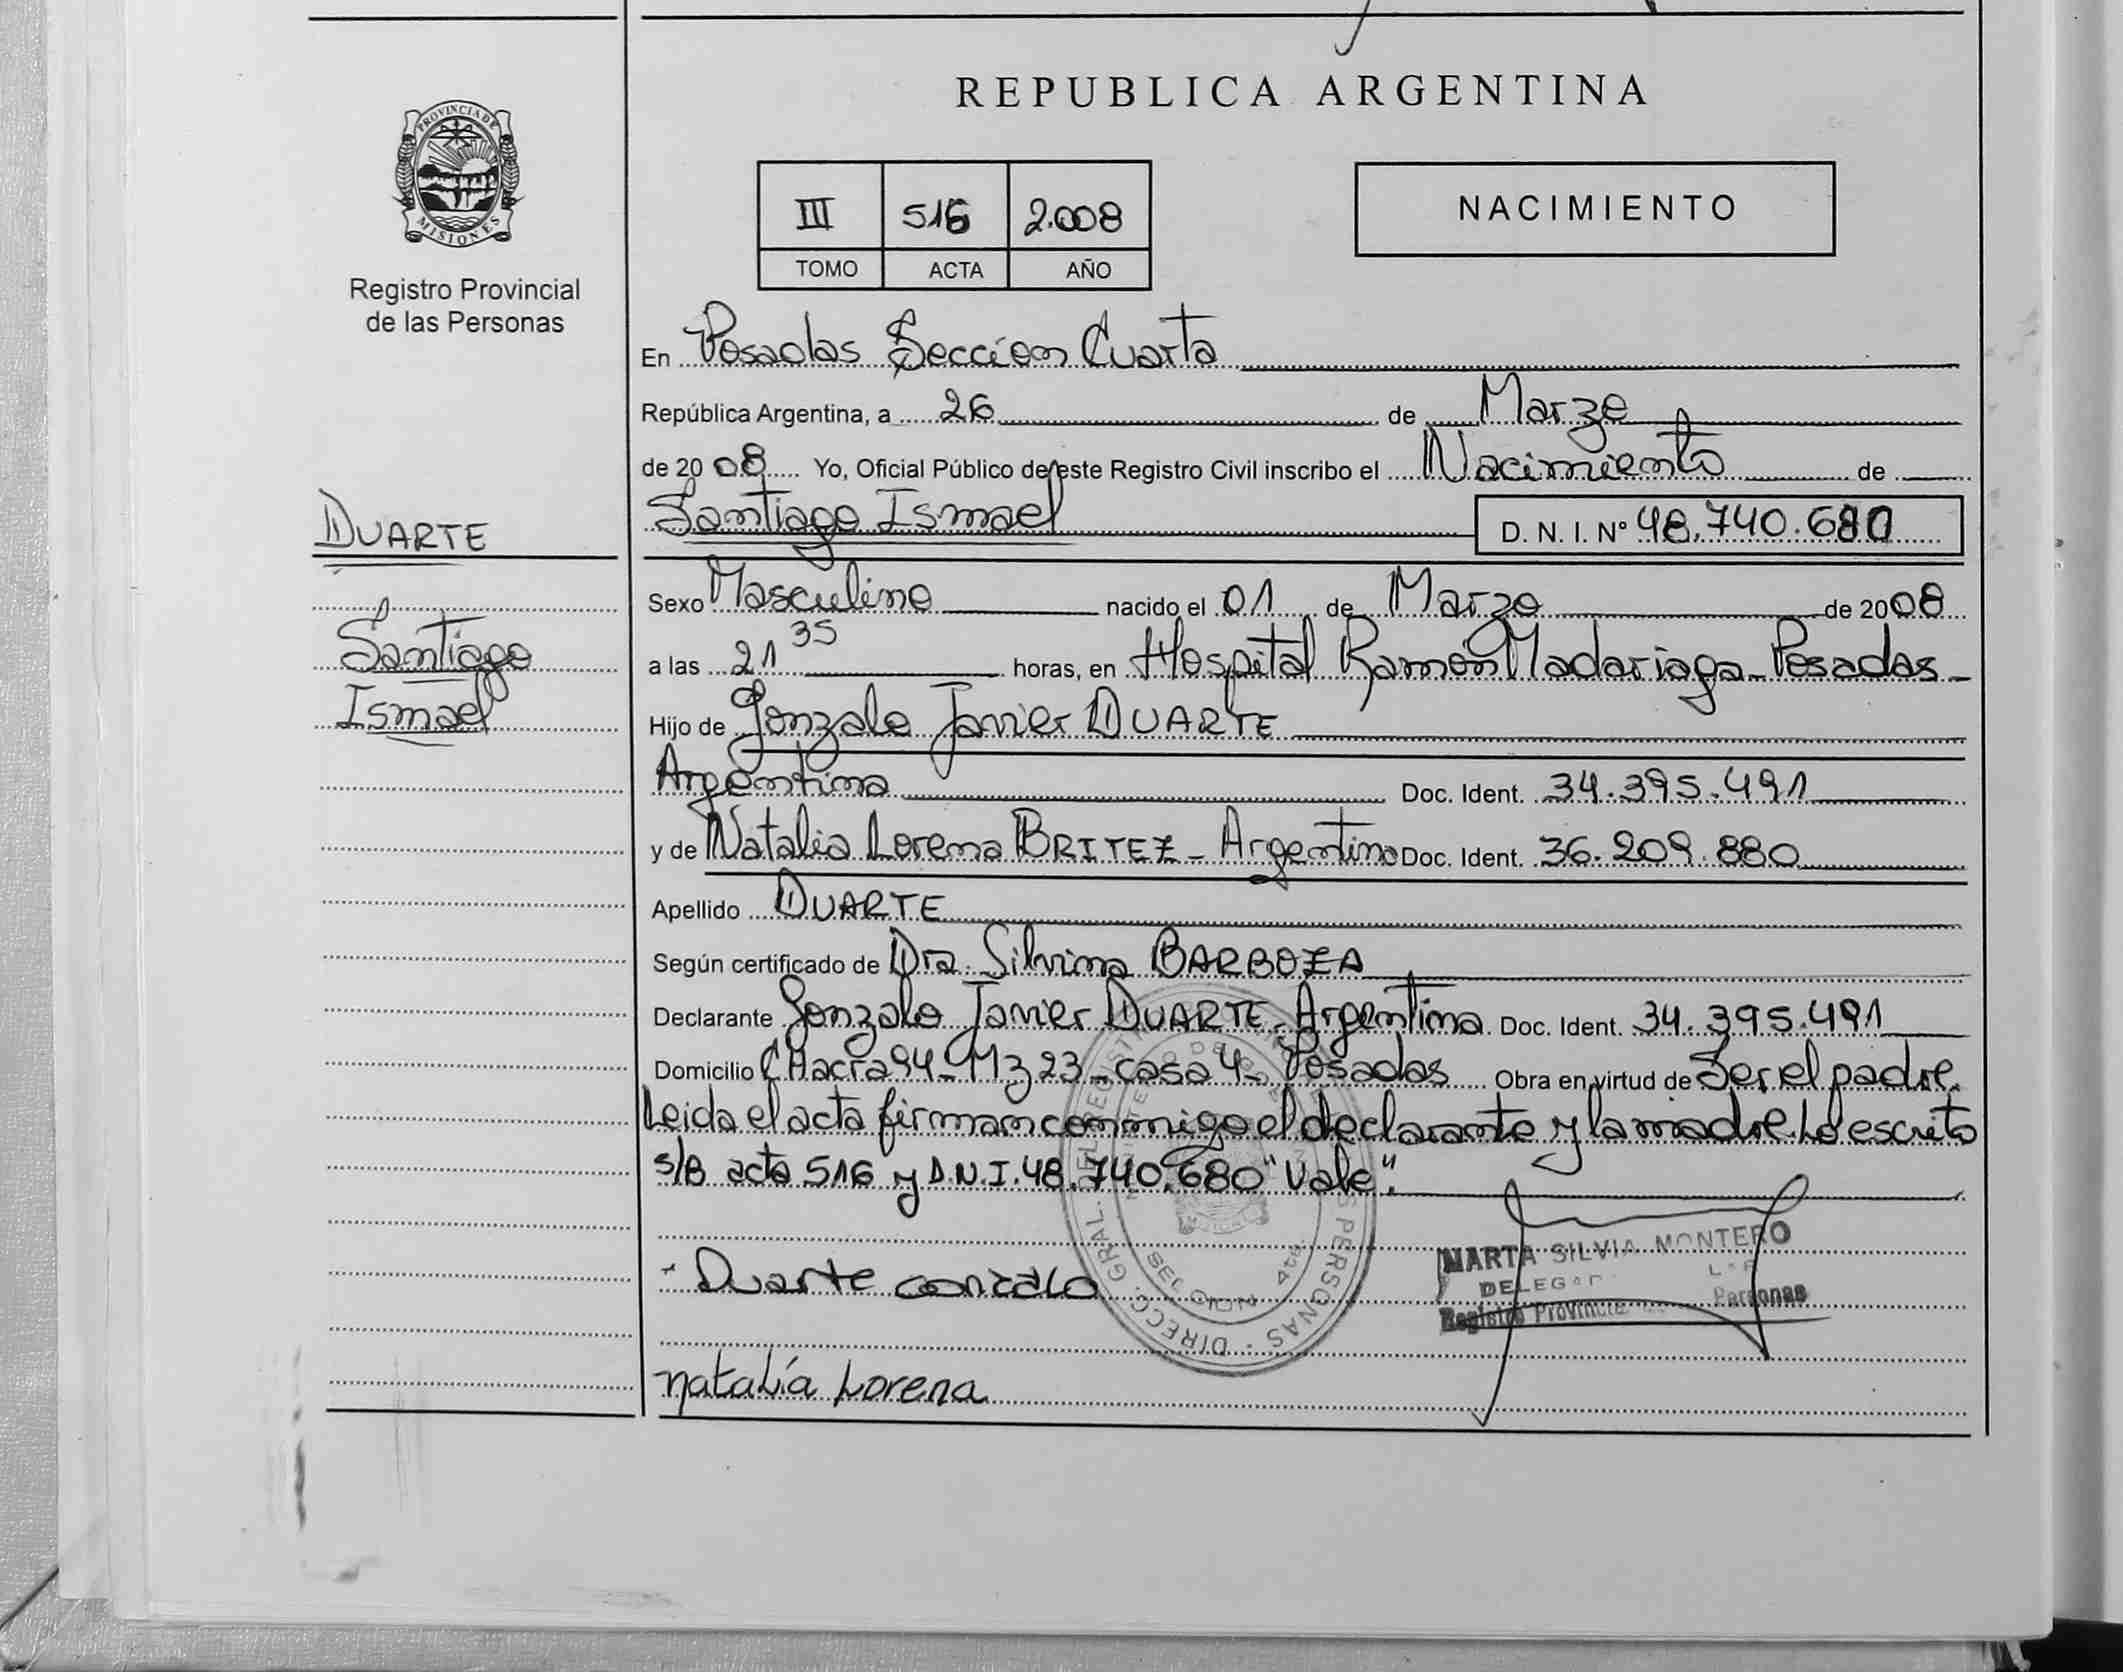 REPUBLICA ARGENTINA
PROVINCIA DE
MISIONES
Registro Provincial
de las Personas
III 516 2.008
TOMO ACTA AÑO
NACIMIENTO
En Posadas Sección Cuarta
República Argentina, a 26 de Marzo
de 2008 Yo, Oficial Público de este Registro Civil inscribo el Nacimiento de
Santiago Ismael D. N. I. Nº 48.740.680
DUARTE
Santiago
Ismael
Sexo Masculino nacido el 01 de Marzo de 2008
a las 21 35 horas, en Hospital Ramón Madariaga - Posadas -
Hijo de Gonzalo Javier DUARTE
Argentina Doc. Ident. 34.395.491
y de Natalia Lorena BRITEZ - Argentina Doc. Ident. 36.209.880
Apellido DUARTE
Según certificado de Dra. Silvina BARBOZA
Declarante Gonzalo Javier DUARTE - Argentina Doc. Ident. 34.395.491
Domicilio CHacra 94 - Mz 23 - casa 4 - Posadas Obra en virtud de Ser el padre.
Leida el acta firman conmigo el declarante y la madre. Lo escrito
s/B acta 516 y D.N.I. 48.740.680 "Vale".
MARTA SILVIA MONTERO
Registro Provincia Personas
Duarte Gonzalo
DIRECC. GRAL. DEL REGISTRO PERSONAS
SECCION 4ta.
natalía Lorena